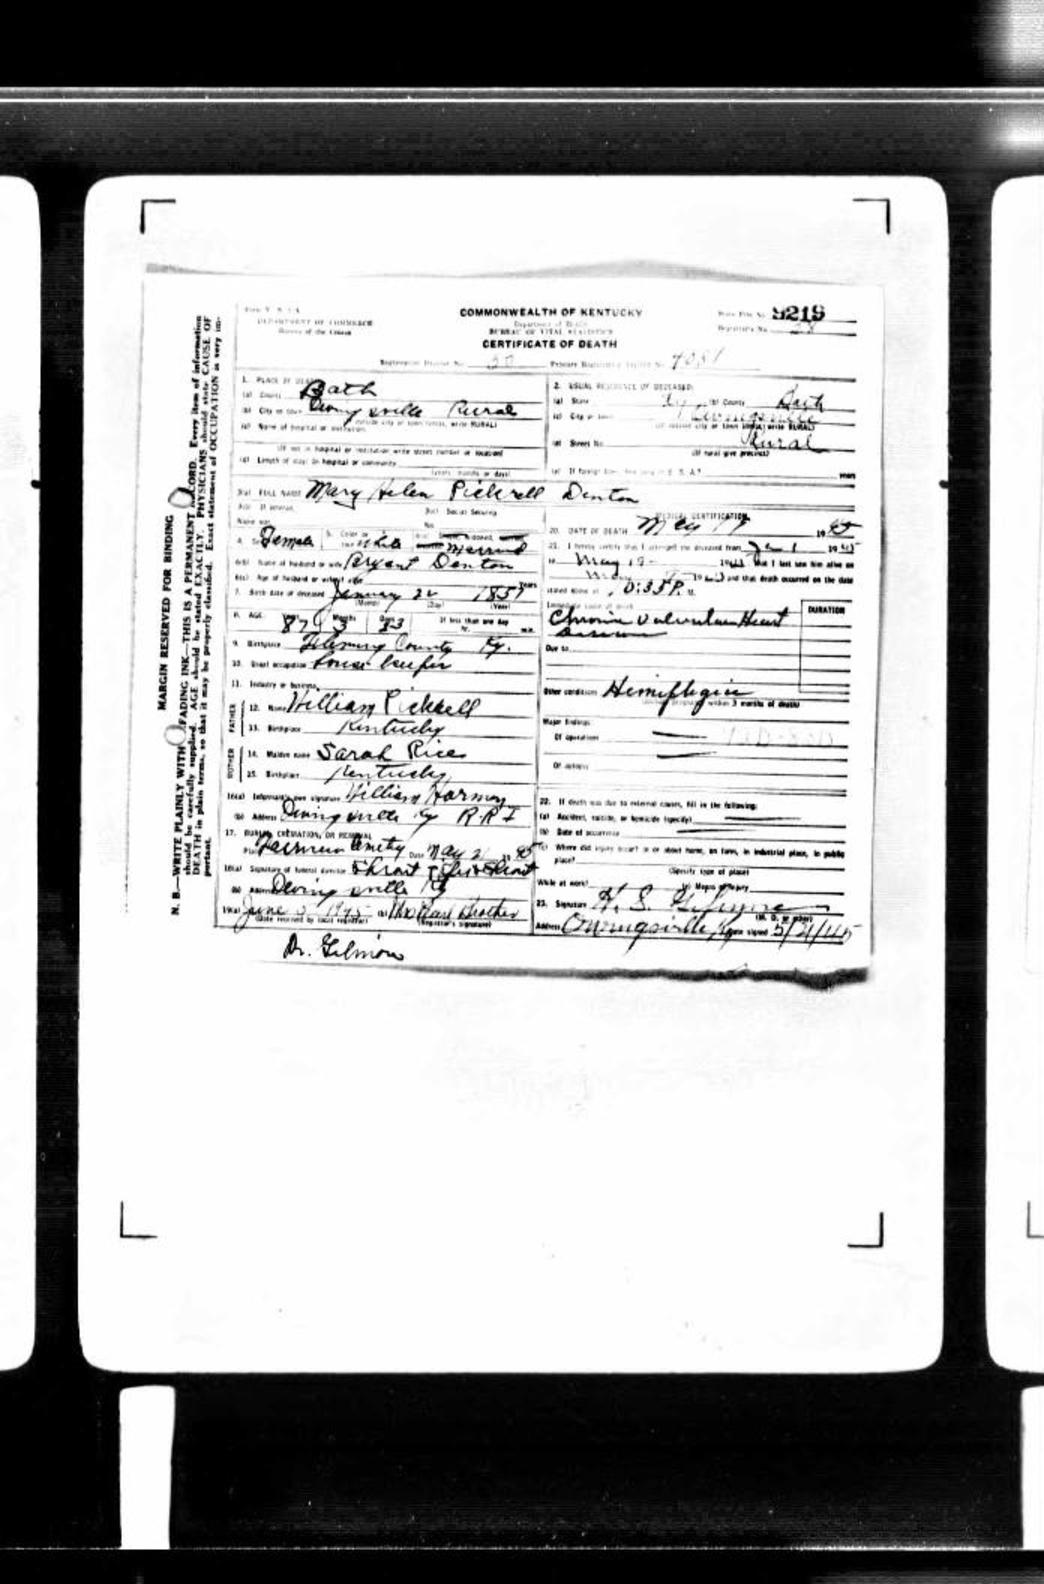 MARGIN RESERVED FOR BINDING
N. B.—WRITE PLAINLY WITH FADING INK—THIS IS A PERMANENT RECORD. Every item of information
should be carefully supplied. AGE should be stated EXACTLY. PHYSICIANS should state CAUSE OF
DEATH in plain terms, so that it may be properly classified. Exact statement of OCCUPATION is very im-
portant.
DEPARTMENT OF COMMERCE
Bureau of the Census
COMMONWEALTH OF KENTUCKY
Department of Health
BUREAU OF VITAL STATISTICS
CERTIFICATE OF DEATH
State File No. 9218
Registrar's No. 28
Registration District No. 50
Primary Registration District No. 4081
1. PLACE OF DEATH
(a) County Bath
(b) City or town Owingsville Rural
(If outside city or town limits, write RURAL)
(c) Name of hospital or institution
(If not in hospital or institution write street number or location)
(d) Length of stay: In hospital or community
(years, months or days)
2. USUAL RESIDENCE OF DECEASED:
(a) State Ky (b) County Bath
(c) City or town Owingsville
(If outside city or town limits, write RURAL)
(d) Street No. Rural
(If rural give precinct)
(e) If foreign born, how long in U. S. A.? years
3(a) FULL NAME Mary Helen Pickrell Denton
3(b) If veteran,
Name war
3(c) Social Security
No.
4. Sex Female 5. Color or race White Married
6(b) Name of husband or wife Bryant Denton
6(c) Age of husband or wife if alive Years
7. Birth date of deceased January 26 1857
(Month) (Day) (Year)
8. AGE Years 87 Months 3 Days 23 If less than one day
hr. min.
9. Birthplace Fleming County Ky.
10. Usual occupation house keeper
11. Industry or business
FATHER
12. Name William Pickrell
13. Birthplace Kentucky
MOTHER
14. Maiden name Sarah Rice
15. Birthplace Kentucky
16(a) Informant's own signature William Harmon
(b) Address Owingsville Ky R.R. I
17. BURIAL, CREMATION, OR REMOVAL
Date May 21
18(a) Signature of funeral director
(b) Address Owingsville Ky
19(a) June 5 1945 (b) Mrs Pearl Brother
(Date received by local registrar) (Registrar's signature)
MEDICAL CERTIFICATION
20. DATE OF DEATH May 19 1945
21. I hereby certify that I attended the deceased from Jan 1 1945
to May 19 that I last saw him alive on
and that death occurred on the date
stated above at 10:35 P. M.
Immediate cause of death
DURATION
Chronic Valvular Heart
disease
Due to
Other conditions Hemiplegia
(Include pregnancy within 3 months of death)
Major findings:
Of operations
Of autopsy
22. If death was due to external causes, fill in the following:
(a) Accident, suicide, or homicide (specify)
(b) Date of occurrence
(c) Where did injury occur? In or about home, on farm, in industrial place, in public
place?
(Specify type of place)
While at work? (e) Means of injury
23. Signature H. S. Gilmore
(M. D. or other)
Address Owingsville, Ky Date signed 5/21/45
Dr. Gilmore